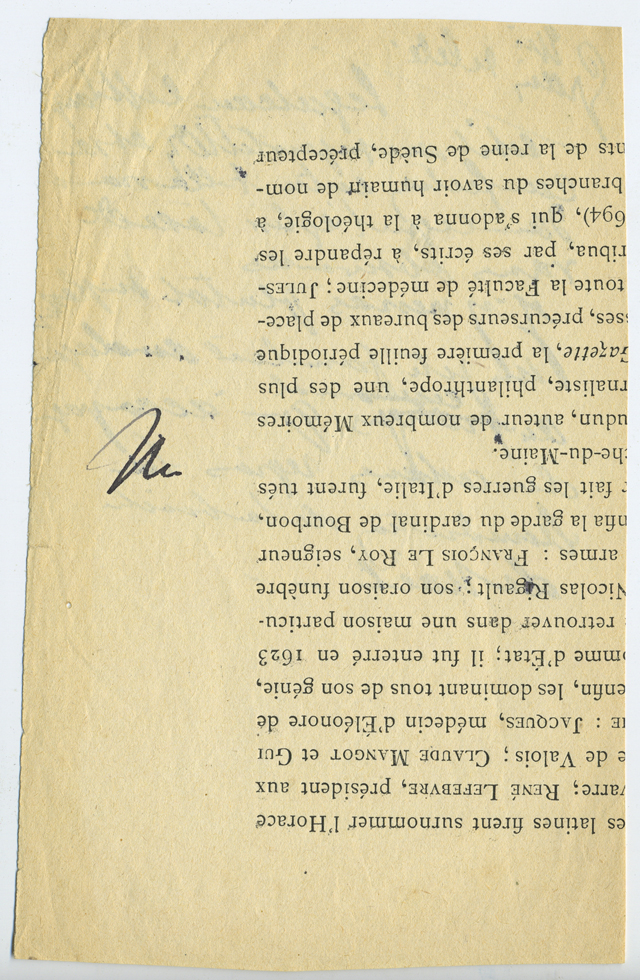 es latines firent surnommer l'Horace
varre; RENÉ LEFEBVRE, président aux
e de Valois; CLAUDE MANGOT et GUI
IE : JACQUES, médecin d'Éléonore de
enfin, les dominant tous de son génie,
omme d'État; il fut enterré en 1623
retrouver dans une maison particu-
Nicolas Rigault; son oraison funèbre
armes : FRANÇOIS LE ROY, seigneur
nfia la garde du cardinal de Bourbon,
r fait les guerres d'Italie, furent tués
che-du-Maine.
udun, auteur de nombreux Mémoires
rnaliste, philanthrope, une des plus
Gazette, la première feuille périodique
sses, précurseurs des bureaux de place-
toute la Faculté de médecine; JULES-
ribua, par ses écrits, à répandre les
694), qui s'adonna à la théologie, à
branches du savoir humain de nom-
nts de la reine de Suède, précepteur